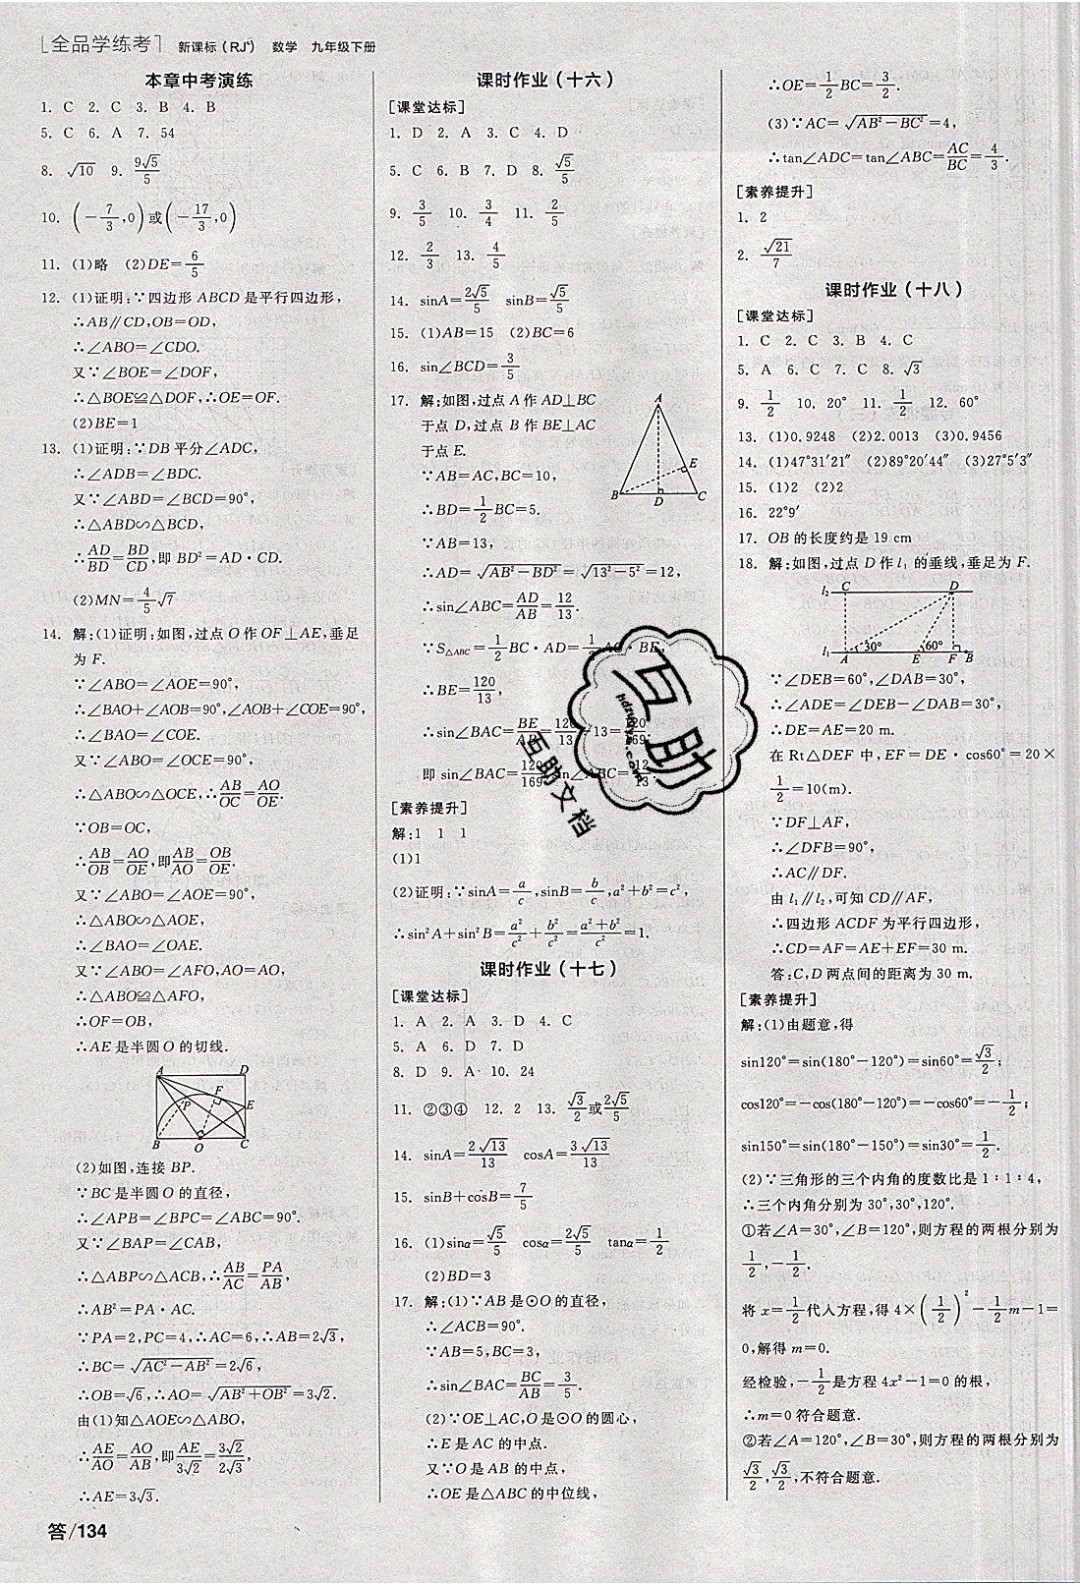 [全品学练考] 新课标(RJ) 数学 九年级下册
本章中考演练
1. C 2. C 3. B 4. B
5. C 6. A 7. 54
8. √10 9. 9√5/5
10. (-7/3,0)或(-17/3,0)
11. (1)略 (2)DE=6/5
12. (1)证明:∵四边形ABCD是平行四边形,
∴AB∥CD,OB=OD,
∴∠ABO=∠CDO.
又∵∠BOE=∠DOF,
∴△BOE≌△DOF,∴OE=OF.
(2)BE=1
13. (1)证明:∵DB平分∠ADC,
∴∠ADB=∠BDC.
又∵∠ABD=∠BCD=90°,
∴△ABD∽△BCD,
∴AD/BD=BD/CD,即BD²=AD·CD.
(2)MN=4/5√7
14. 解:(1)证明:如图,过点O作OF⊥AE,垂足
为F.
∵∠ABO=∠AOE=90°,
∴∠BAO+∠AOB=90°,∠AOB+∠COE=90°,
∴∠BAO=∠COE.
又∵∠ABO=∠OCE=90°,
∴△ABO∽△OCE,∴AB/OC=AO/OE.
∵OB=OC,
∴AB/OB=AO/OE,即AB/AO=OB/OE.
又∵∠ABO=∠AOE=90°,
∴△ABO∽△AOE,
∴∠BAO=∠OAE.
又∵∠ABO=∠AFO,AO=AO,
∴△ABO≌△AFO,
∴OF=OB,
∴AE是半圆O的切线.
A D
P F E
B O C
(2)如图,连接BP.
∵BC是半圆O的直径,
∴∠APB=∠BPC=∠ABC=90°.
又∵∠BAP=∠CAB,
∴△ABP∽△ACB,∴AB/AC=PA/AB,
∴AB²=PA·AC.
∵PA=2,PC=4,∴AC=6,∴AB=2√3,
∴BC=√AC²-AB²=2√6,
∴OB=√6,∴AO=√AB²+OB²=3√2.
由(1)知△AOE∽△ABO,
∴AE/AO=AO/AB,即AE/3√2=3√2/2√3,
∴AE=3√3.
答/134
课时作业(十六)
[课堂达标]
1. D 2. A 3. C 4. D
5. C 6. B 7. D 8. √5/5
9. 3/5 10. 3/4 11. 2/5
12. 2/3 13. 4/5
14. sinA=2√5/5 sinB=√5/5
15. (1)AB=15 (2)BC=6
16. sin∠BCD=3/5
17. 解:如图,过点A作AD⊥BC
于点D,过点B作BE⊥AC
于点E.
∵AB=AC,BC=10,
∴BD=1/2BC=5.
∵AB=13,
∴AD=√AB²-BD²=√13²-5²=12,
∴sin∠ABC=AD/AB=12/13.
∵S△ABC=1/2BC·AD=1/2AC·BE,
∴BE=120/13,
∴sin∠BAC=BE/AB=120/13÷13=120/169.
即sin∠BAC=120/169,sin∠ABC=12/13.
A
E
B D C
[素养提升]
解:1 1 1
(1)1
(2)证明:∵sinA=a/c,sinB=b/c,a²+b²=c²,
∴sin²A+sin²B=a²/c²+b²/c²=a²+b²/c²=1.
课时作业(十七)
[课堂达标]
1. A 2. A 3. D 4. C
5. A 6. D 7. D
8. D 9. A 10. 24
11. ②③④ 12. 2 13. √3/2或2√5/5
14. sinA=2√13/13 cosA=3√13/13
15. sinB+cosB=7/5
16. (1)sinα=√5/5 cosα=2√5/5 tanα=1/2
(2)BD=3
17. 解:(1)∵AB是⊙O的直径,
∴∠ACB=90°.
∵AB=5,BC=3,
∴sin∠BAC=BC/AB=3/5.
(2)∵OE⊥AC,O是⊙O的圆心,
∴E是AC的中点.
又∵O是AB的中点,
∴OE是△ABC的中位线,
∴OE=1/2BC=3/2.
(3)∵AC=√AB²-BC²=4,
∴tan∠ADC=tan∠ABC=AC/BC=4/3.
[素养提升]
1. 2
2. √21/7
课时作业(十八)
[课堂达标]
1. C 2. C 3. B 4. C
5. A 6. C 7. C 8. √3
9. 1/2 10. 20° 11. 1/2 12. 60°
13. (1)0.9248 (2)2.0013 (3)0.9456
14. (1)47°31′21″ (2)89°20′44″ (3)27°5′3″
15. (1)2 (2)2
16. 22°9′
17. OB的长度约是19 cm
18. 解:如图,过点D作l₁的垂线,垂足为F.
l₂ C D
30° 60°
l₁ A E F B
∵∠DEB=60°,∠DAB=30°,
∴∠ADE=∠DEB-∠DAB=30°,
∴DE=AE=20 m.
在Rt△DEF中,EF=DE·cos60°=20×
1/2=10(m).
∵DF⊥AF,
∴∠DFB=90°,
∴AC∥DF.
由l₁∥l₂,可知CD∥AF,
∴四边形ACDF为平行四边形,
∴CD=AF=AE+EF=30 m.
答:C,D两点间的距离为30 m.
[素养提升]
解:(1)由题意,得
sin120°=sin(180°-120°)=sin60°=√3/2;
cos120°=-cos(180°-120°)=-cos60°=-1/2;
sin150°=sin(180°-150°)=sin30°=1/2.
(2)∵三角形的三个内角的度数比是1:1:4,
∴三个内角分别为30°,30°,120°.
①若∠A=30°,∠B=120°,则方程的两根分别为
1/2,-1/2.
将x=1/2代入方程,得4×(1/2)²-1/2m-1=
0,解得m=0.
经检验,-1/2是方程4x²-1=0的根,
∴m=0符合题意.
②若∠A=120°,∠B=30°,则方程的两根分别为
√3/2,√3/2,不符合题意.
互助
hdzuoye.com
互助文档